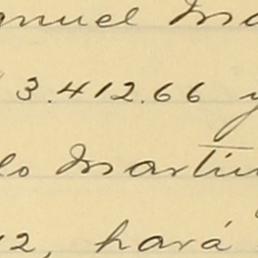 anuel Ma
3.412.66 y
lo Martín
12, hará